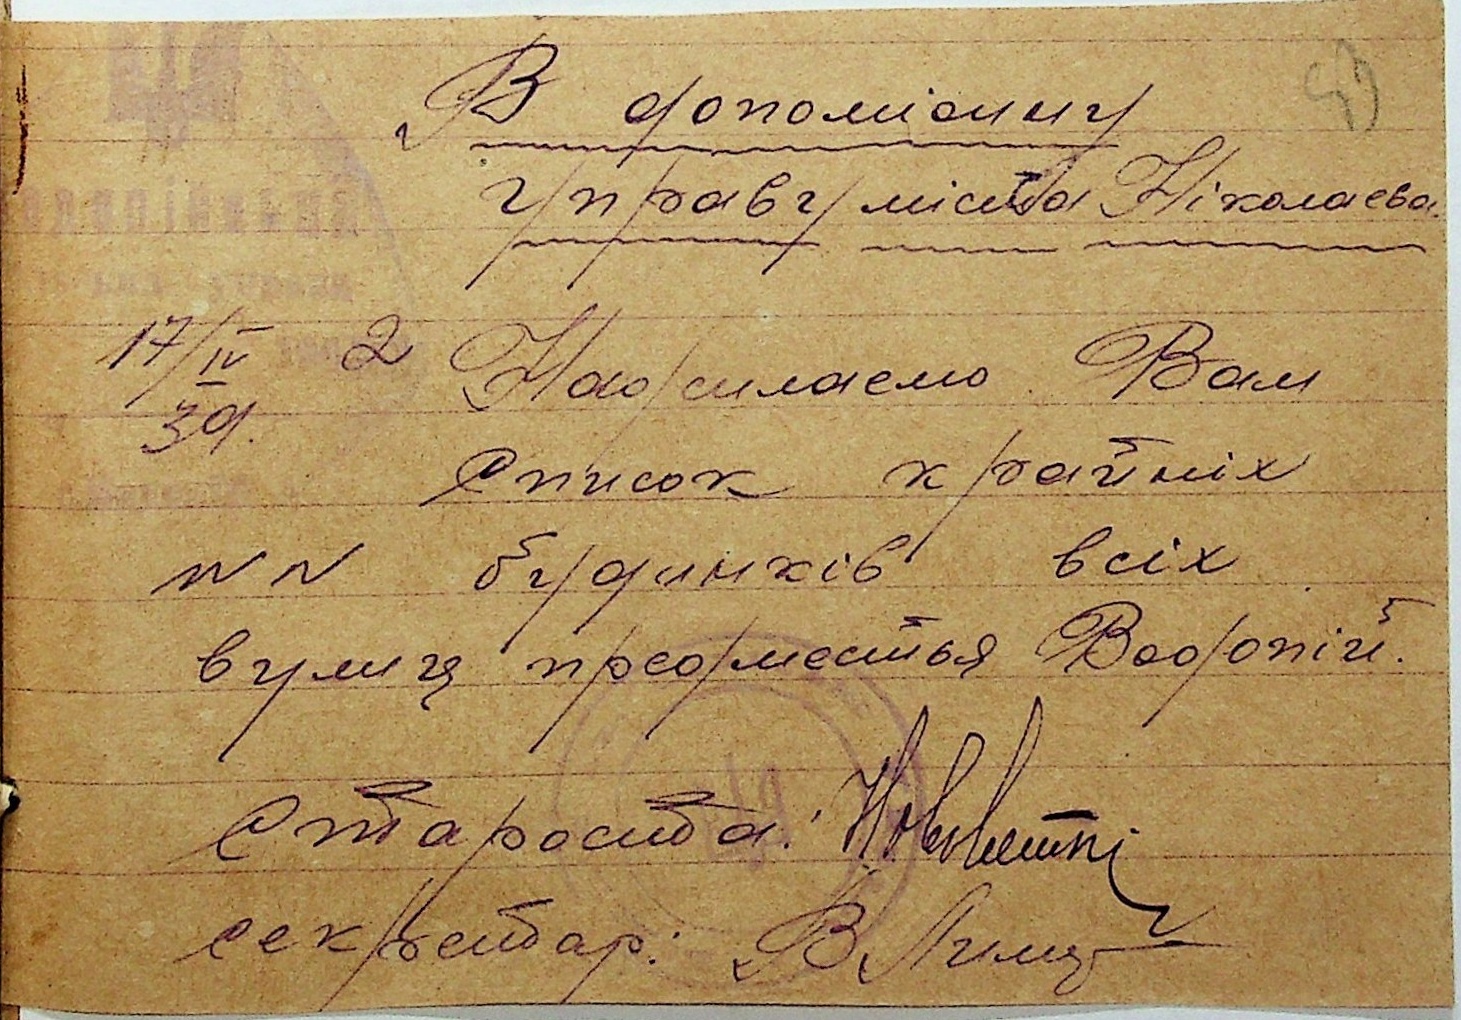 В допоміжну
управу міста Ніколаева.
17/IV 2 Надсилаемо Вам
39.
Список крайніх
NN будинків всіх
вулиц предместья Водопій.
Староста:
секретар: В